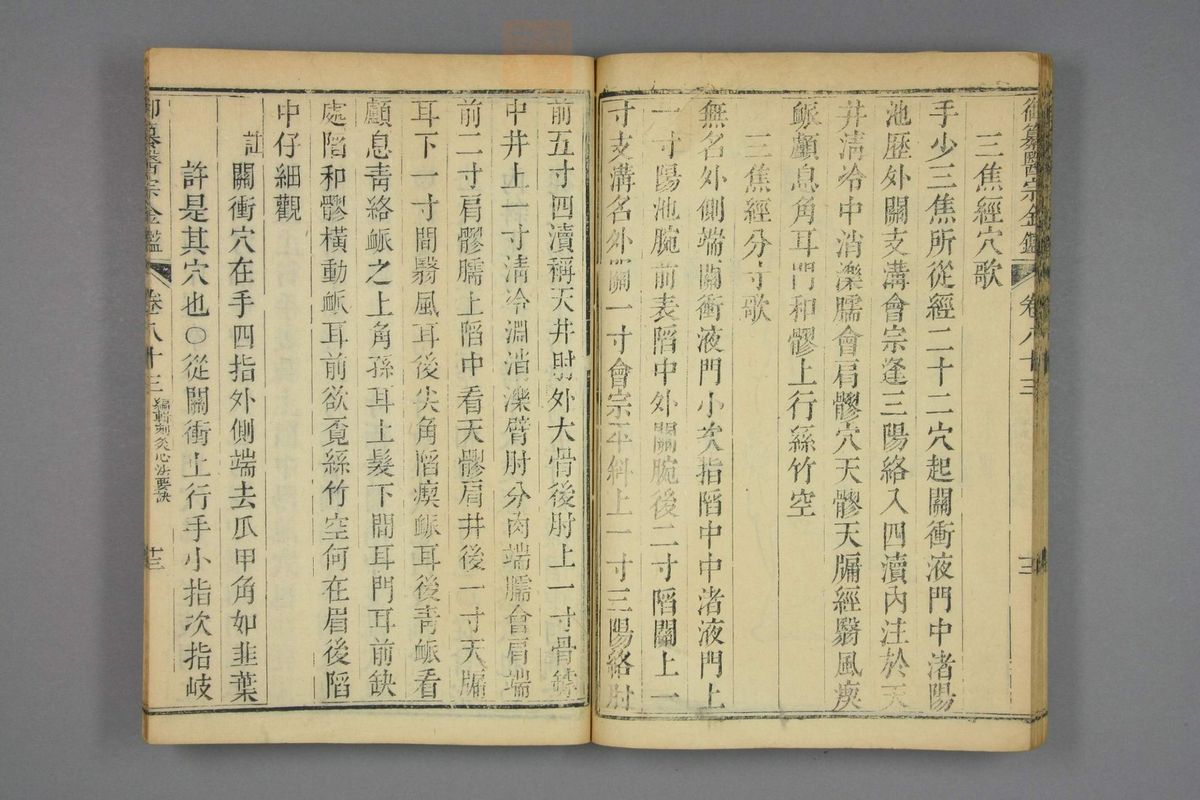 御纂醫宗金鑑 卷八十三 三
三焦經穴歌
手少三焦所從經二十二穴起關衝液門中渚陽
池歷外關支溝會宗逢三陽絡入四瀆內注於天
井淸冷中消濼臑會肩髎穴天髎天牖經翳風瘈
䘑顱息角耳門和髎上行絲竹空
三焦經分寸歌
無名外側端關衝液門小次指陷中中渚液門上
一寸陽池腕前表陷中外關腕後二寸陷關上一
寸支溝名外關一寸會宗平斜上一寸三陽絡肘
前五寸四瀆稱天井肘外大骨後肘上一寸骨罅
中井上一寸淸冷淵消濼臂肘分肉端臑會肩端
前二寸肩髎臑上陷中看天髎肩井後一寸天牖
耳下一寸間翳風耳後尖角陷瘈䘑耳後靑䘑看
顱息靑絡䘑之上角孫耳上髮下間耳門耳前缺
處陷和髎橫動䘑耳前欲覓絲竹空何在眉後陷
中仔細觀
註 關衝穴在手四指外側端去爪甲角如韭葉
許是其穴也○從關衝上行手小指次指岐
御纂醫宗金鑑 卷八十三 編輯刺灸心法要訣 十三